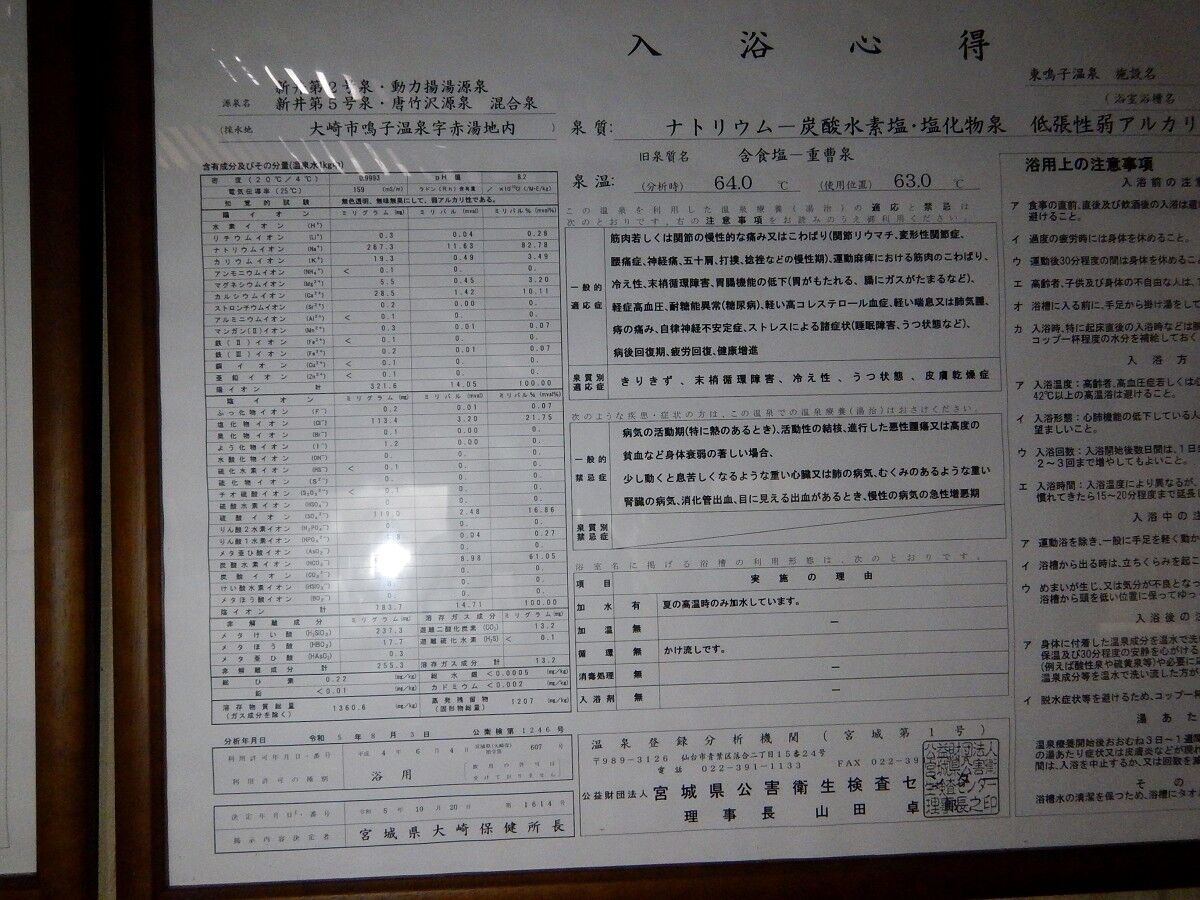 入浴心得
新井第2号泉・動力揚湯源泉
源泉名 新井第5号泉・唐竹沢源泉 混合泉
(採水地 大崎市鳴子温泉字赤湯地内 )
東鳴子温泉 施設名
(浴室浴槽名
泉質: ナトリウム－炭酸水素塩・塩化物泉 低張性弱アルカリ
旧泉質名 含食塩－重曹泉
泉温: (分析時) 64.0 ℃ (使用位置) 63.0 ℃
含有成分及びその分量(温泉水1kg中)
密度(20℃/4℃) 0.9993 pH値 8.2
電気伝導率(25℃) 159 (mS/m) ラドン(Rn)含有量
知覚的試験 無色透明、無味無臭にして、弱アルカリ性である。
陽イオン ミリグラム(mg) ミリバル(mval) ミリバル%(mval%)
水素イオン (H⁺)
リチウムイオン (Li⁺) 0.3 0.04 0.28
ナトリウムイオン (Na⁺) 267.3 11.63 82.78
カリウムイオン (K⁺) 19.3 0.49 3.49
アンモニウムイオン (NH₄⁺) < 0.1 0.
マグネシウムイオン (Mg²⁺) 5.5 0.45 3.20
カルシウムイオン (Ca²⁺) 28.5 1.42 10.11
ストロンチウムイオン (Sr²⁺) 0.2 0.00 0.
アルミニウムイオン (Al³⁺) < 0.1 0. 0.
マンガン(Ⅱ)イオン (Mn²⁺) 0.3 0.01 0.07
鉄(Ⅱ)イオン (Fe²⁺) < 0.1 0. 0.
鉄(Ⅲ)イオン (Fe³⁺) 0.2 0.01 0.07
銅イオン (Cu²⁺) < 0.1 0. 0.
亜鉛イオン (Zn²⁺) < 0.1 0. 0.
陽イオン 計 321.6 14.05 100.00
陰イオン ミリグラム(mg) ミリバル(mval) ミリバル%(mval%)
ふっ化物イオン (F⁻) 0.2 0.01 0.07
塩化物イオン (Cl⁻) 113.4 3.20 21.75
臭化物イオン (Br⁻) 0.1 0.00 0.
よう化物イオン (I⁻) 1.2 0.00 0.
水酸化物イオン (OH⁻) 0. 0.
硫化水素イオン (HS⁻) < 0.1 0. 0.
硫化物イオン (S²⁻) 0. 0. 0.
チオ硫酸イオン (S₂O₃²⁻) < 0.1 0. 0.
硫酸水素イオン (HSO₄⁻) 0. 0. 0.
硫酸イオン (SO₄²⁻) 119.0 2.48 16.86
りん酸2水素イオン (H₂PO₄⁻) 0. 0.
りん酸1水素イオン (HPO₄²⁻) 0.04 0.27
メタ亜ひ酸イオン (AsO₂⁻) 0. 0.
炭酸水素イオン (HCO₃⁻) 8.98 61.05
炭酸イオン (CO₃²⁻) 0. 0.
けい酸水素イオン (HSiO₃⁻) 0. 0.
メタほう酸イオン (BO₂⁻) 0. 0. 0.
陰イオン 計 783.7 14.71 100.00
非解離成分 ミリグラム(mg) 溶存ガス成分 ミリグラム(mg)
メタけい酸 (H₂SiO₃) 237.3 遊離二酸化炭素(CO₂) 13.2
メタほう酸 (HBO₂) 17.7 遊離硫化水素(H₂S) < 0.1
メタ亜ひ酸 (HAsO₂) 0.3
非解離成分 計 255.3 溶存ガス成分 計 13.2
総ひ素 0.22 (mg/kg) 総水銀 <0.0005 (mg/kg)
鉛 <0.01 (mg/kg) カドミウム <0.002 (mg/kg)
溶存物質総量 (ガス成分を除く) 1360.6 (mg/kg) 蒸発残留物 (固形物総量) 1207 (mg/kg)
分析年月日 令和5年8月3日 公衛検第1246号
利用許可年月日・番号 平成4年6月4日 宮城県(大崎保)指令第 607 号
利用許可の種別 浴用 飲用の許可は受けておりません。
決定年月日・番号 令和5年10月20日 第1614号
掲示内容決定者 宮城県大崎保健所長
この温泉を利用した温泉療養(湯治)の適応と禁忌は
次のとおりです、右の注意事項をお読みのうえ御利用ください。
一般的適応症
筋肉若しくは関節の慢性的な痛み又はこわばり(関節リウマチ、変形性関節症、
腰痛症、神経痛、五十肩、打撲、捻挫などの慢性期)、運動麻痺における筋肉のこわばり、
冷え性、末梢循環障害、胃腸機能の低下(胃がもたれる、腸にガスがたまるなど)、
軽症高血圧、耐糖能異常(糖尿病)、軽い高コレステロール血症、軽い喘息又は肺気腫、
痔の痛み、自律神経不安定症、ストレスによる諸症状(睡眠障害、うつ状態など)、
病後回復期、疲労回復、健康増進
泉質別適応症 きりきず、末梢循環障害、冷え性、うつ状態、皮膚乾燥症
次のような疾患・症状の方は、この温泉での温泉療養(湯治)はおさけください。
一般的禁忌症
病気の活動期(特に熱のあるとき)、活動性の結核、進行した悪性腫瘍又は高度の
貧血など身体衰弱の著しい場合、
少し動くと息苦しくなるような重い心臓又は肺の病気、むくみのあるような重い
腎臓の病気、消化管出血、目に見える出血があるとき、慢性の病気の急性増悪期
泉質別禁忌症
浴室名に掲げる浴槽の利用形態は、次のとおりです。
項目 実施の理由
加水 有 夏の高温時のみ加水しています。
加温 無 －
循環 無 かけ流しです。
消毒処理 無 －
入浴剤 無 －
温泉登録分析機関(宮城第1号)
〒989-3126 仙台市青葉区落合二丁目15番24号
電話 022-391-1133 FAX 022-39
公益財団法人 宮城県公害衛生検査セ
理事長 山田 卓
公益財団法人宮城県公害衛生検査センター理事長之印
浴用上の注意事項
入浴前の注
ア 食事の直前、直後及び飲酒後の入浴は避
避けること。
イ 過度の疲労時には身体を休めること。
ウ 運動後30分程度の間は身体を休めること
エ 高齢者、子供及び身体の不自由な人は、1
オ 浴槽に入る前に、手足から掛け湯をして
カ 入浴時、特に起床直後の入浴時などは脱
コップ一杯程度の水分を補給しておく
入浴方
ア 入浴温度：高齢者、高血圧症若しくは心
42℃以上の高温浴は避けること。
イ 入浴形態：心肺機能の低下している人
望ましいこと。
ウ 入浴回数：入浴開始後数日間は、1日
2～3回まで増やしてもよいこと。
エ 入浴時間：入浴温度により異なるが、
慣れてきたら15～20分程度まで延長
入浴中の注
ア 運動浴を除き、一般に手足を軽く動か
イ 浴槽から出る時は、立ちくらみを起こ
ウ めまいが生じ、又は気分が不良となっ
浴槽から頭を低い位置に保ってゆっ
入浴後の注
ア 身体に付着した温泉成分を温水で洗
保温及び30分程度の安静を心がける
(例えば酸性泉や硫黄泉等)や必要に
温泉成分等を温水で洗い流した方が
イ 脱水症状等を避けるため、コップ一杯
湯あた
温泉療養開始後おおむね3日～1週間
の湯あたり症状又は皮膚炎などが現れ
間は、入浴を中止するか、又は回数を減
その
浴槽水の清潔を保つため、浴槽にタオ